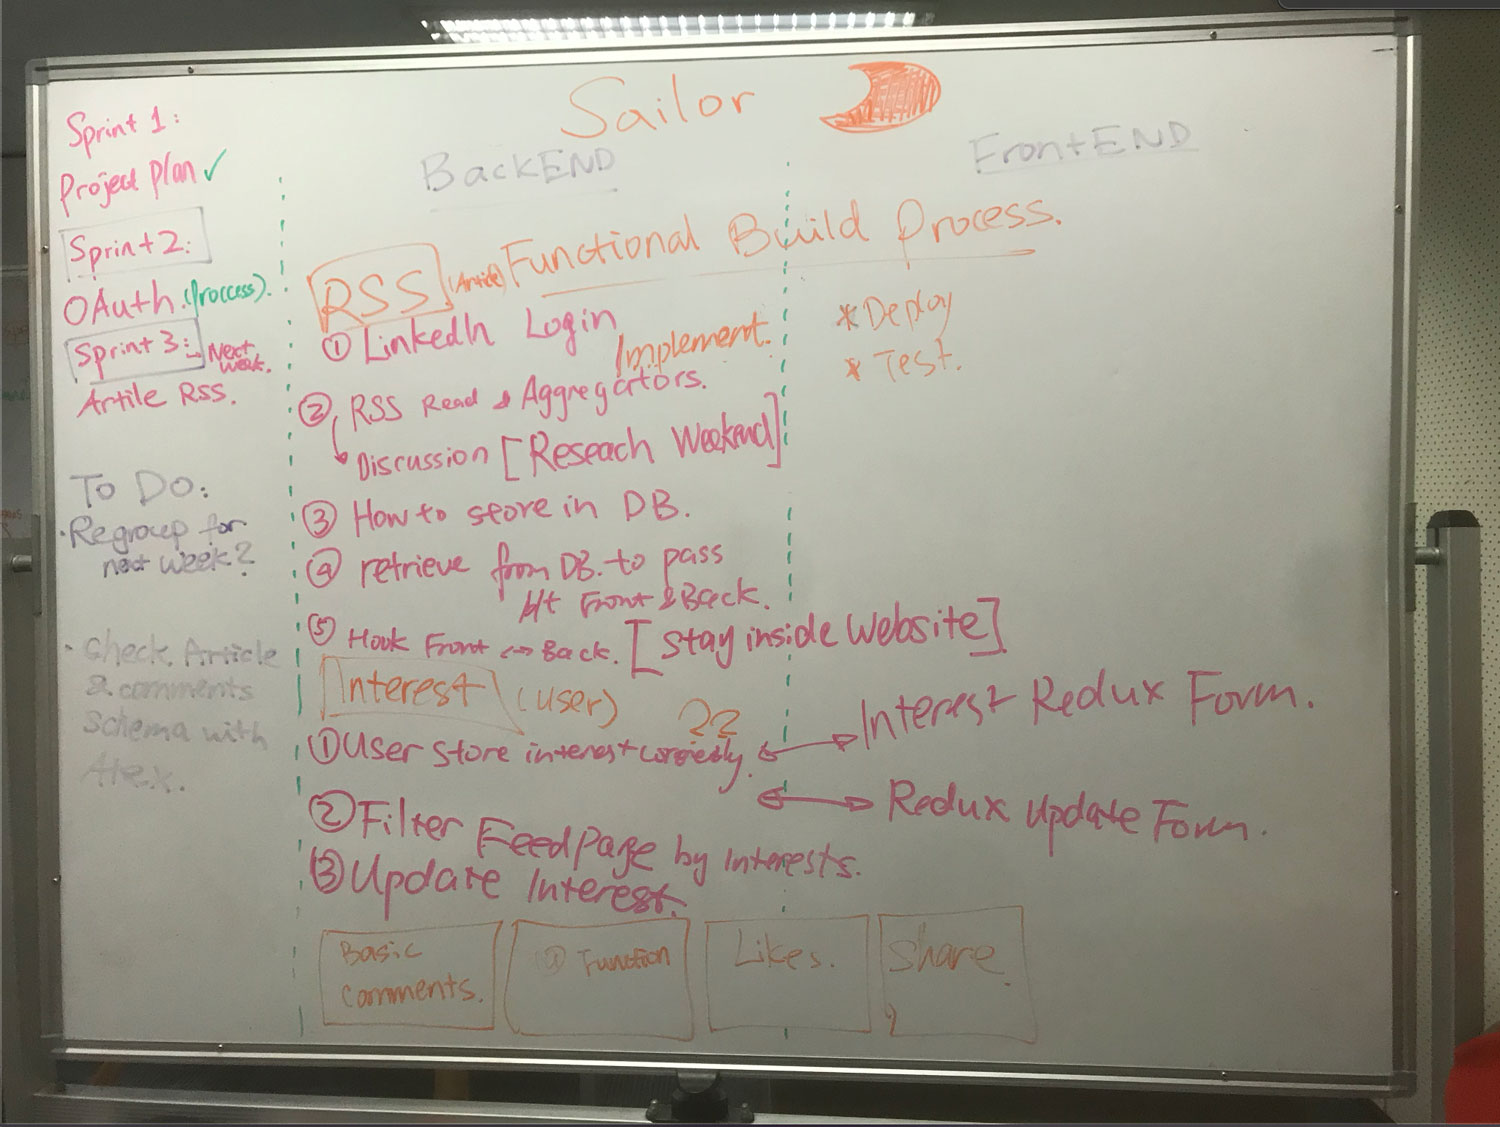 Sailor
Sprint 1:
Project plan ✓
Sprint 2:
OAuth. (Proccess).
Sprint 3: → Next week.
Artile RSS.
To Do:
• Regroup for
next week?
• Check Article
& comments
Schema with
Alex.
BackEND
FrontEND
Functional Build Process.
RSS (Article)
① LinkedIn Login
Implement.
② RSS Read & Aggregators.
Discussion [Reseach Weekend]
③ How to store in DB.
④ retrieve from DB. to pass
Front & Back.
⑤ Hook Front ↔ Back. [Stay inside Website]
* Deploy
* Test.
Interest (user)
① User store interest ↔ Interest Redux Form.
↔ Redux Update Form.
② Filter Feed Page by Interests.
③ Update Interest.
Basic
Comments.
Function
Likes.
Share